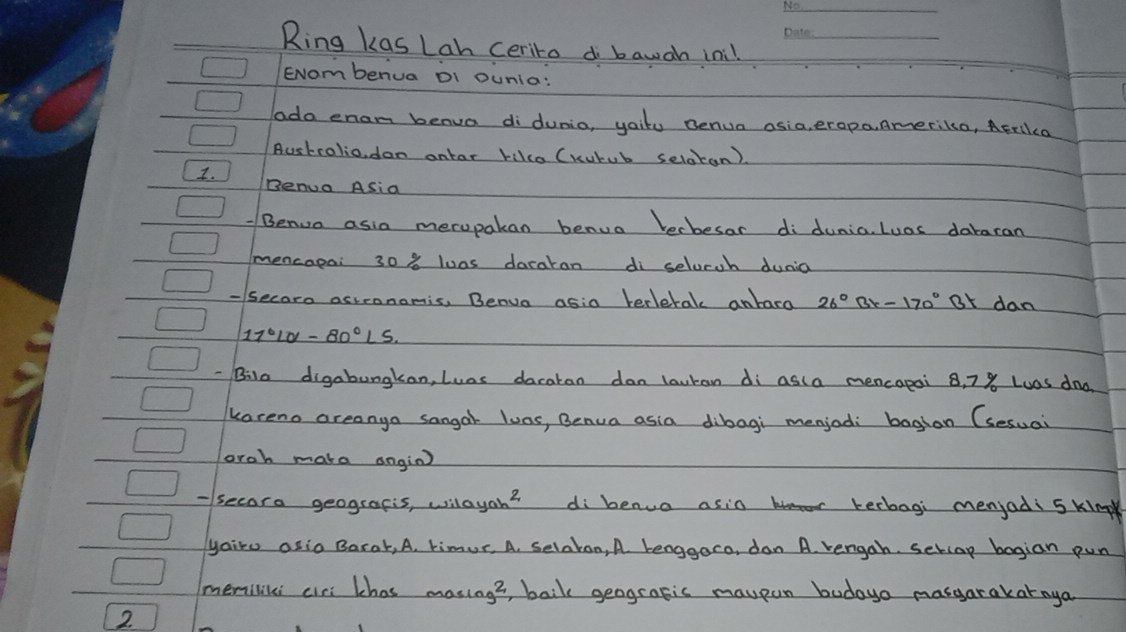 No.
Date:
Ringkas Lah Cerita di bawah ini!
ENam benua DI Dunia:
ada enam benua di dunia, yaitu Benua asia, eropa, Amerika, Afrika
Australia, dan antar tika (kutub selatan).
1. Benua Asia
- Benua asia merupakan benua terbesar di dunia. Luas dataran
mencapai 30 % luas daratan di seluruh dunia
- Secara astronamis, Benua asia terletak antara 26° Bt - 170° Bt dan
11° LU - 80° LS.
- Bila digabungkan, Luas daratan dan lautan di asia mencapai 8,7 % Luas dna.
karena areanya sangat luas, Benua asia dibagi menjadi bagian (sesuai
arah mata angin)
- secara geografis, wilayah² di benua asia terbagi menjadi 5 klmpk
yaitu asia Barat, A. timur, A. Selatan, A tenggara, dan A. tengah. setiap bagian pun
memiliki ciri khas masing², baik geografis maupun budaya masyarakatnya
2